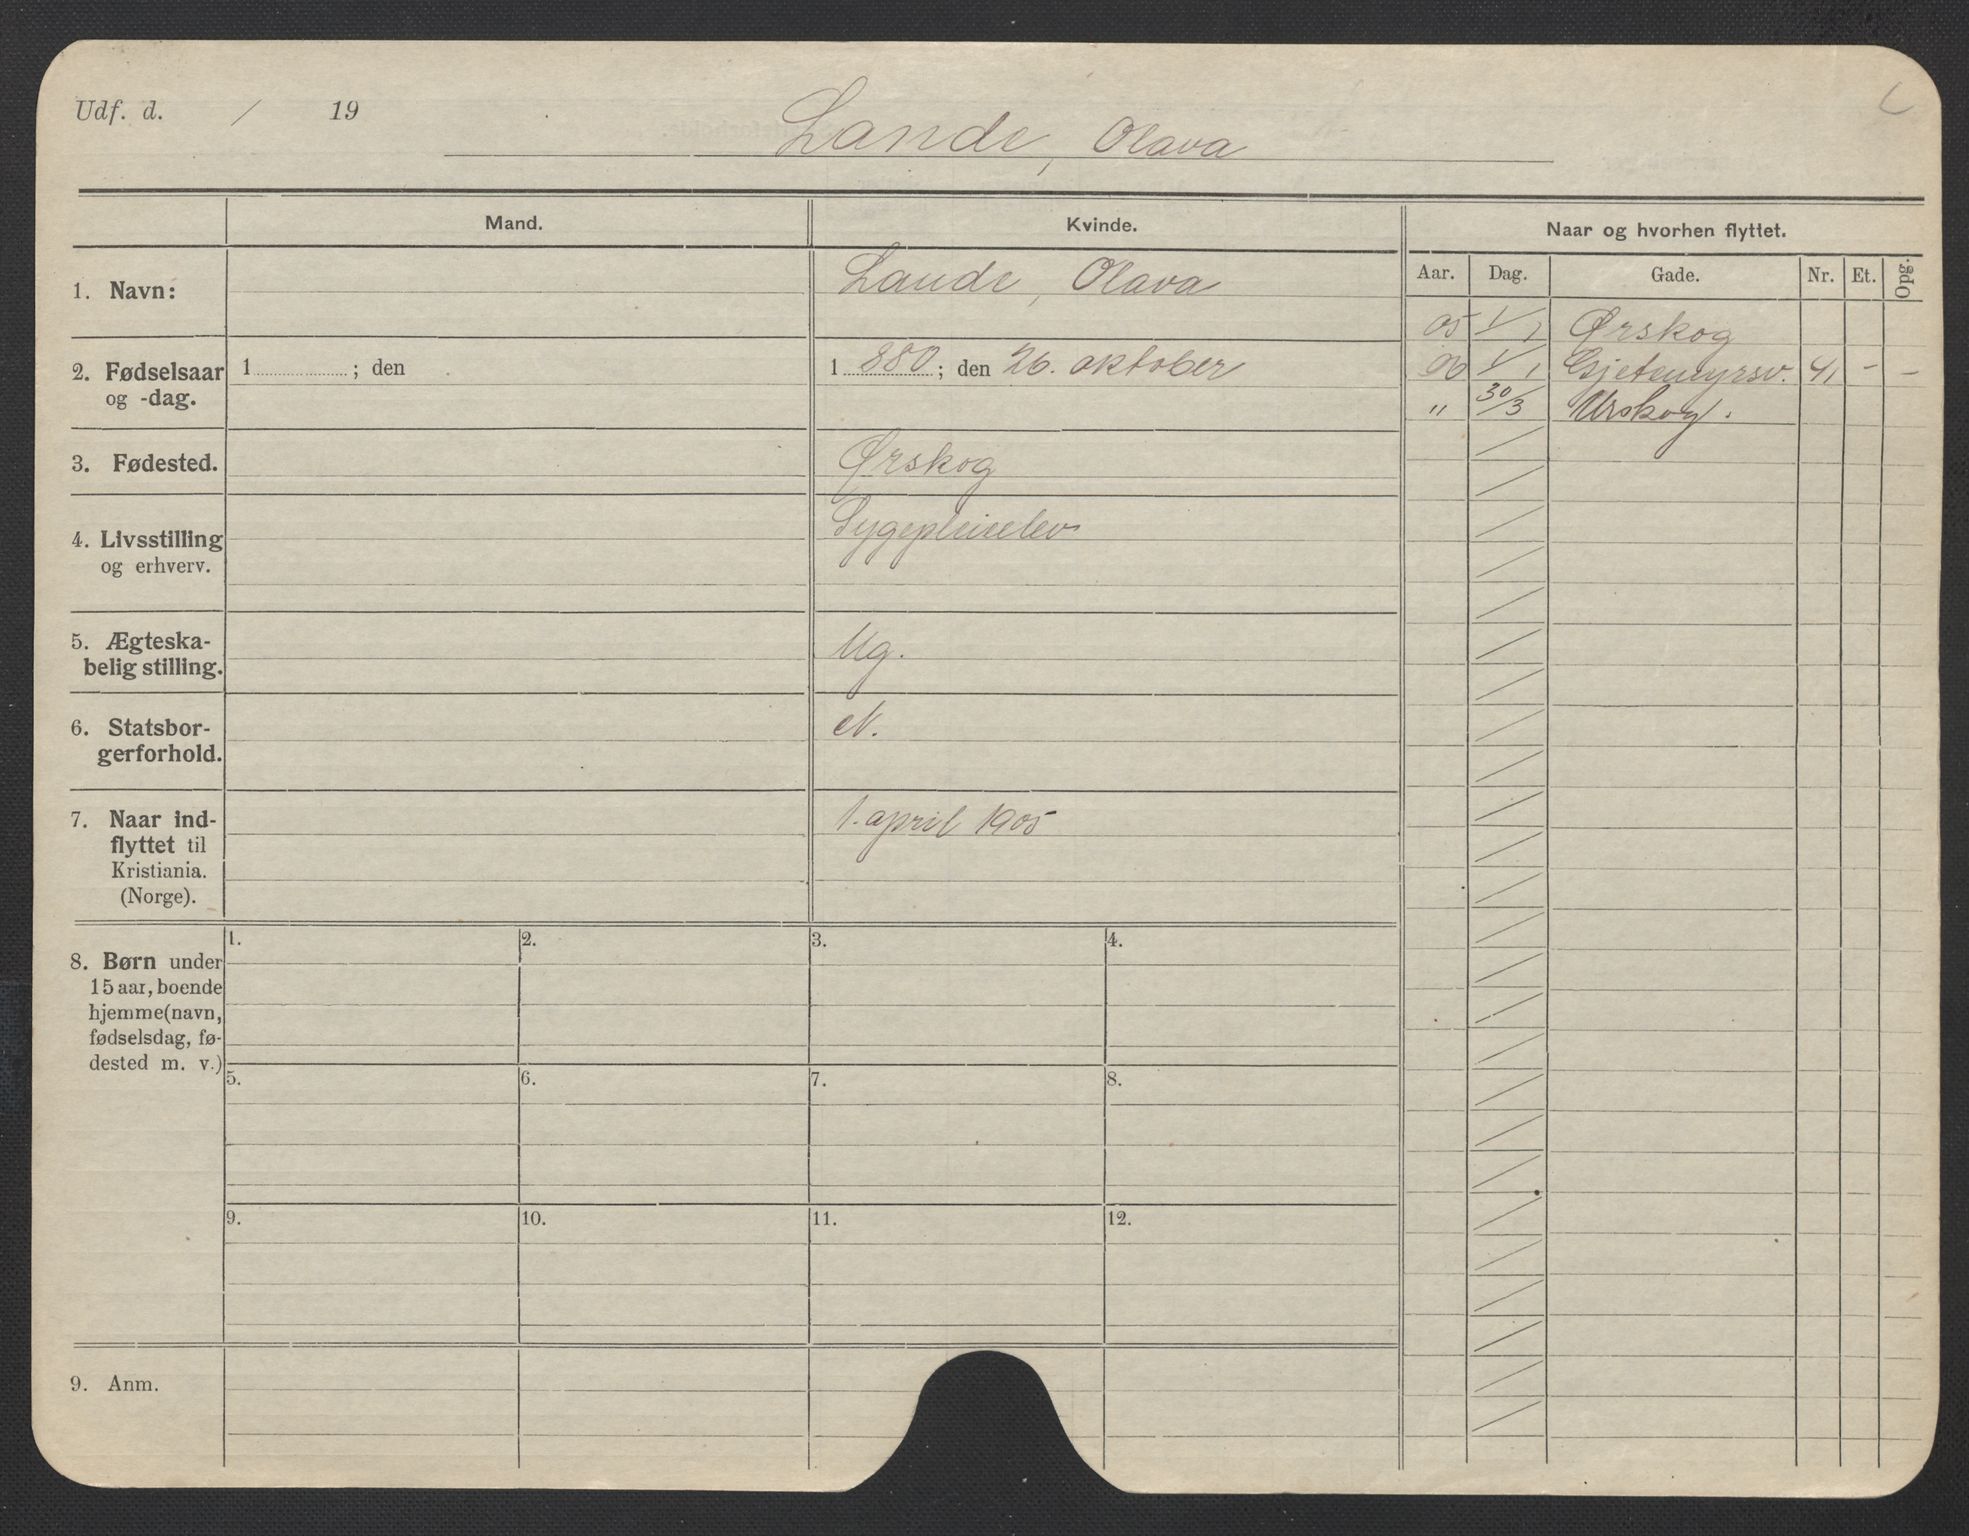 Udf. d. / 19
Lande, Olava
Mand.
Kvinde.
Naar og hvorhen flyttet.
Aar. Dag. Gade. Nr. Et. Opg.
1. Navn:
Lande, Olava
05 1/1 Ørskog
2. Fødselsaar
og -dag.
1 ; den
1 880 ; den 26. oktober
06 1/1 Gjetemyrsv. 41 - -
" 30/3 Urskog.
3. Fødested.
Ørskog
4. Livsstilling
og erhverv.
Sygepleieelev
5. Ægteska-
belig stilling.
Ug.
6. Statsbor-
gerforhold.
N.
7. Naar ind-
flyttet til
Kristiania.
(Norge).
1. april 1905
8. Børn under
15 aar, boende
hjemme (navn,
fødselsdag, fø-
dested m. v.)
1. 2. 3. 4.
5. 6. 7. 8.
9. 10. 11. 12.
9. Anm.